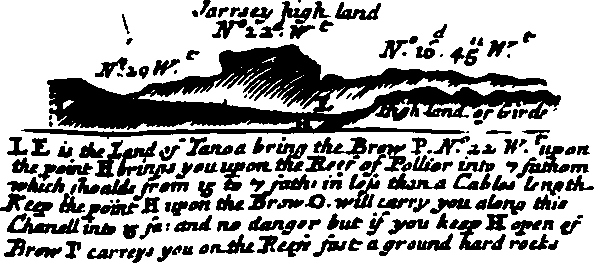 Jarrsey high land
No 22d. Wt
No 10.d 45" Wt
No. 29 Wt
L
H
high land of Girds
L E is the Land of Tanoa bring the Brow P. No. 22 Wt upon
the point H brings you upon the Reef of Pollior into 7 fathom
which shoalds from 15 to 7 fath: in less than a Cables length
Keep the point H upon the Brow O. will carry you along this
Chanell into 15 fa: and no danger but if you keep H open of
Brow P carreys you on the Reefe fast a ground hard rocks